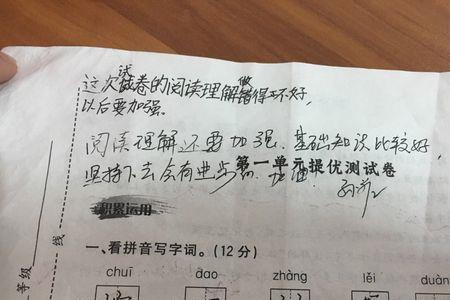 这次试卷的阅读理解做得不好,
以后要加强。
阅读理解还要加强。基础知识比较好,
坚持下去会有进步。加油
第一单元提优测试卷
积累运用
一、看拼音写字词。(12分)
chuī zhàng lěi duàn
线
等级